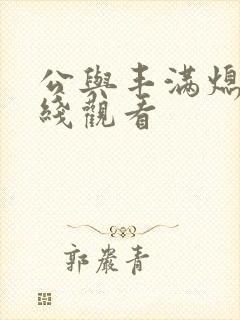 公與丰滿媳
綫觀看
郭巖青